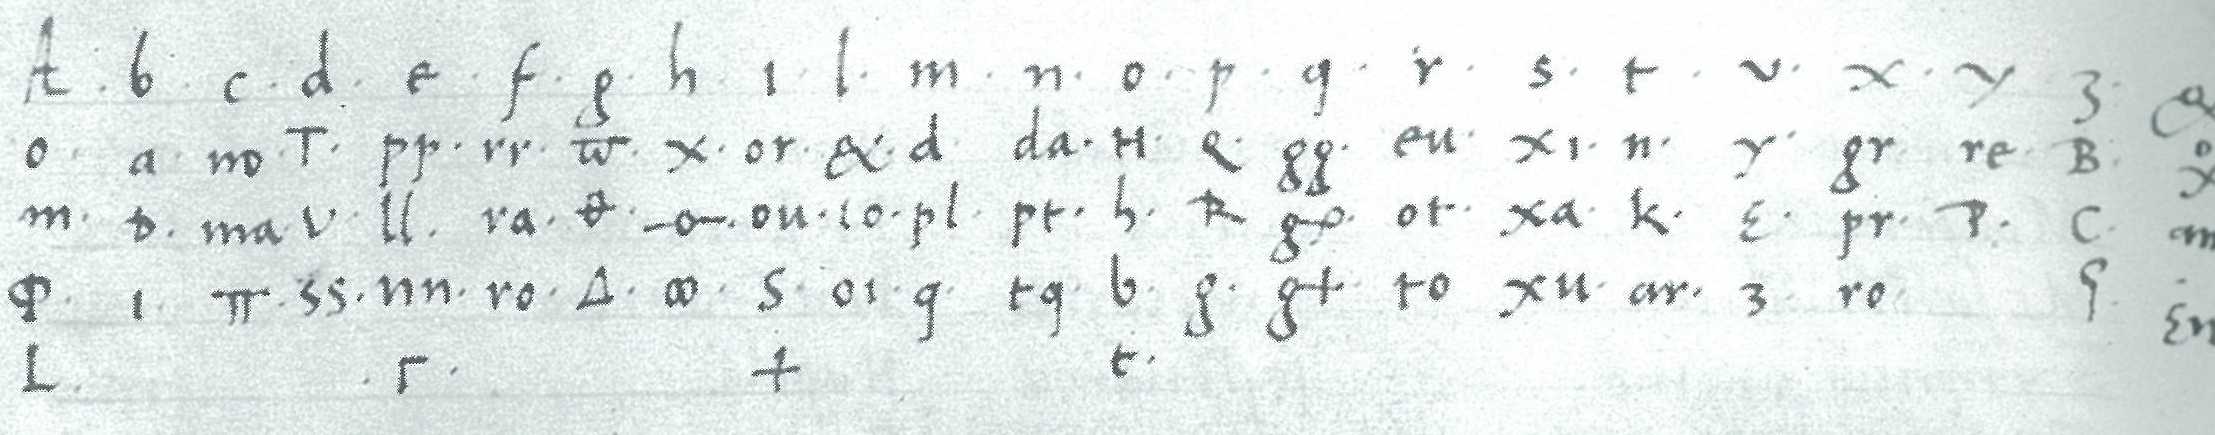 A . b . c . d . e . f . g . h . ı . l . m . n . o . p . q . r . s . t . v . x . y . ʒ .
o . a . mo . T . pp . rr . ϖ . x . or . & . d da . H . Q . gg . eu . xı . n . y . gr re . B .
m . ma . V . ll . ra . ou . ıo . pl . pt . h . R . ot . xa . k . Ɛ . pr . P . C .
Φ . ı . π . ss . nn . ro . Δ . ꝏ . S . oı . q tq . b . g . g+ . to xu . ar . 3 . ro . ς .
L . . Γ . + t .